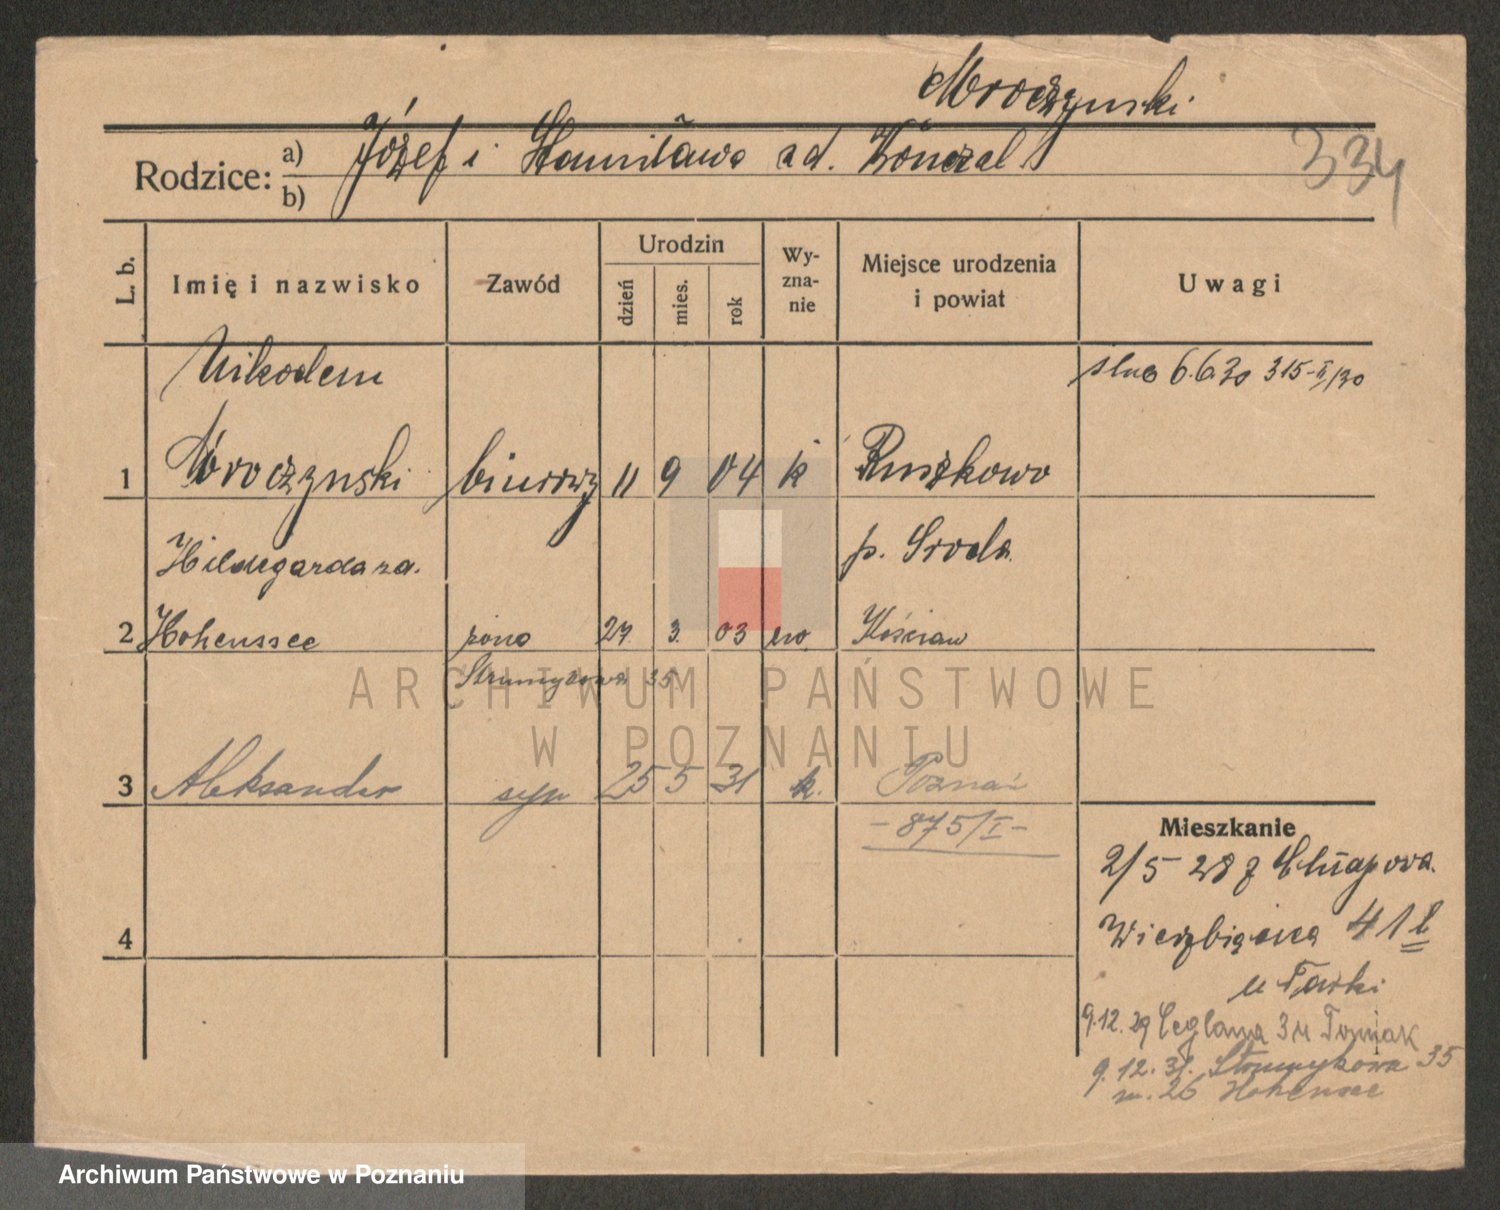 Mroczynski
Rodzice: a) Józef i Stanisława zd. Kończal
b)
334
L. b. Imię i nazwisko Zawód Urodzin dzień mies. rok Wyznanie Miejsce urodzenia i powiat Uwagi
Nikodem ślub 6.6.30 315-II/30
1 Mroczynski biurowy 11 9 04 k Ruszkowo
Hildegarda za. p. Sroda
2 Hohensee żona 27 3. 03 ew. Kościan
Strumykowa 35
3 Aleksander syn 25 5 31 k. Poznań
- 875/I -
4
Mieszkanie
2/5 28 z
Wierzbięcice 41
u
9.12.29 Ceglana 3 u
9.12.31. Strumykowa 35
m. 26 Hohensee
ARCHIWUM PAŃSTWOWE
W POZNANIU
Archiwum Państwowe w Poznaniu